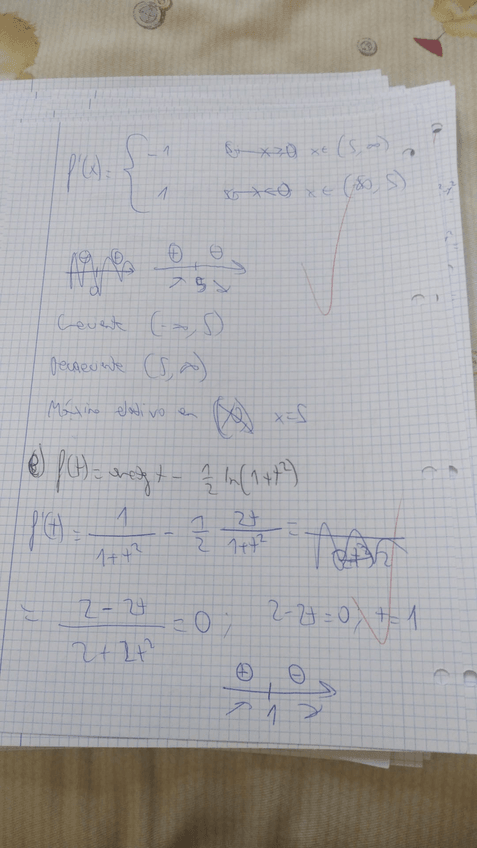 f'(x) = { -1 x ∈ (5, ∞)
1 x ∈ (-∞, 5)
⊕ ⊖
↗ 5 ↘
Creciente (-∞, 5)
Decreciente (5, ∞)
Máximo relativo en x=5
e) f(t) = arctg t - 1/2 ln(1+t²)
f'(t) = 1/(1+t²) - 1/2 2t/(1+t²) =
= (2-2t)/(2+2t²) = 0 ; 2-2t=0; t=1
⊕ ⊖
↗ 1 ↘